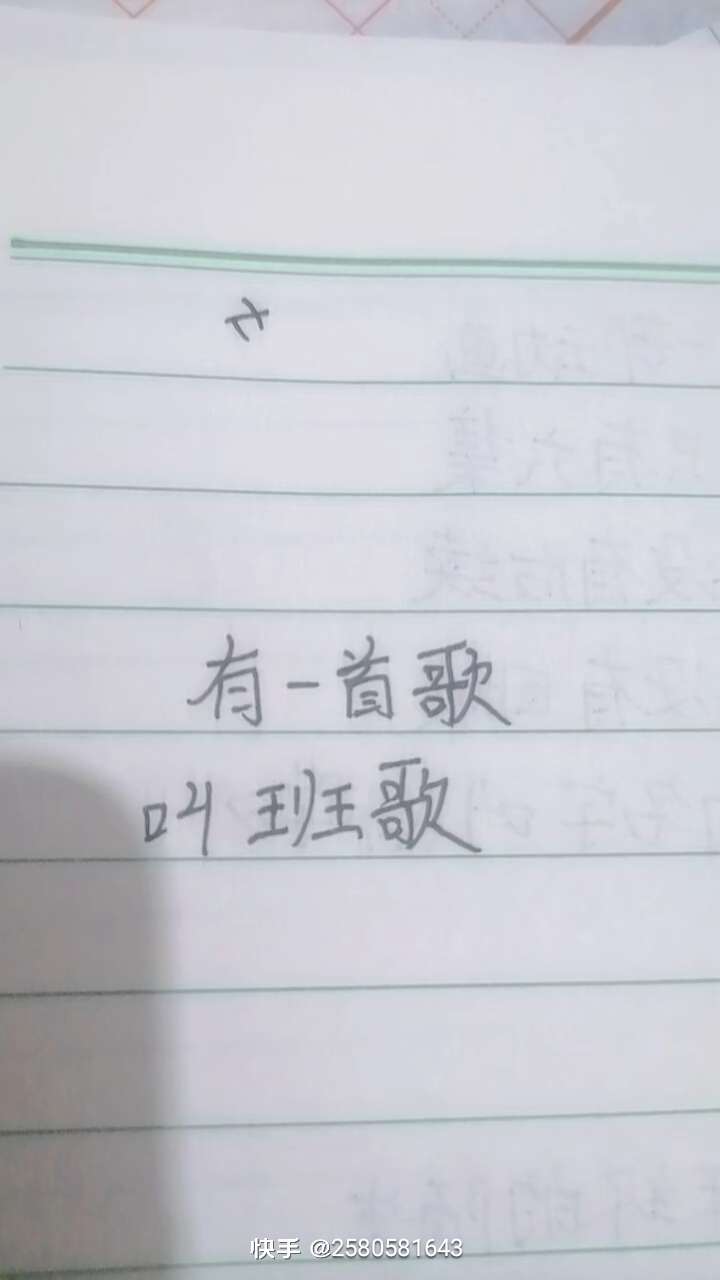 有一首歌
叫班歌
快手 @2580581643